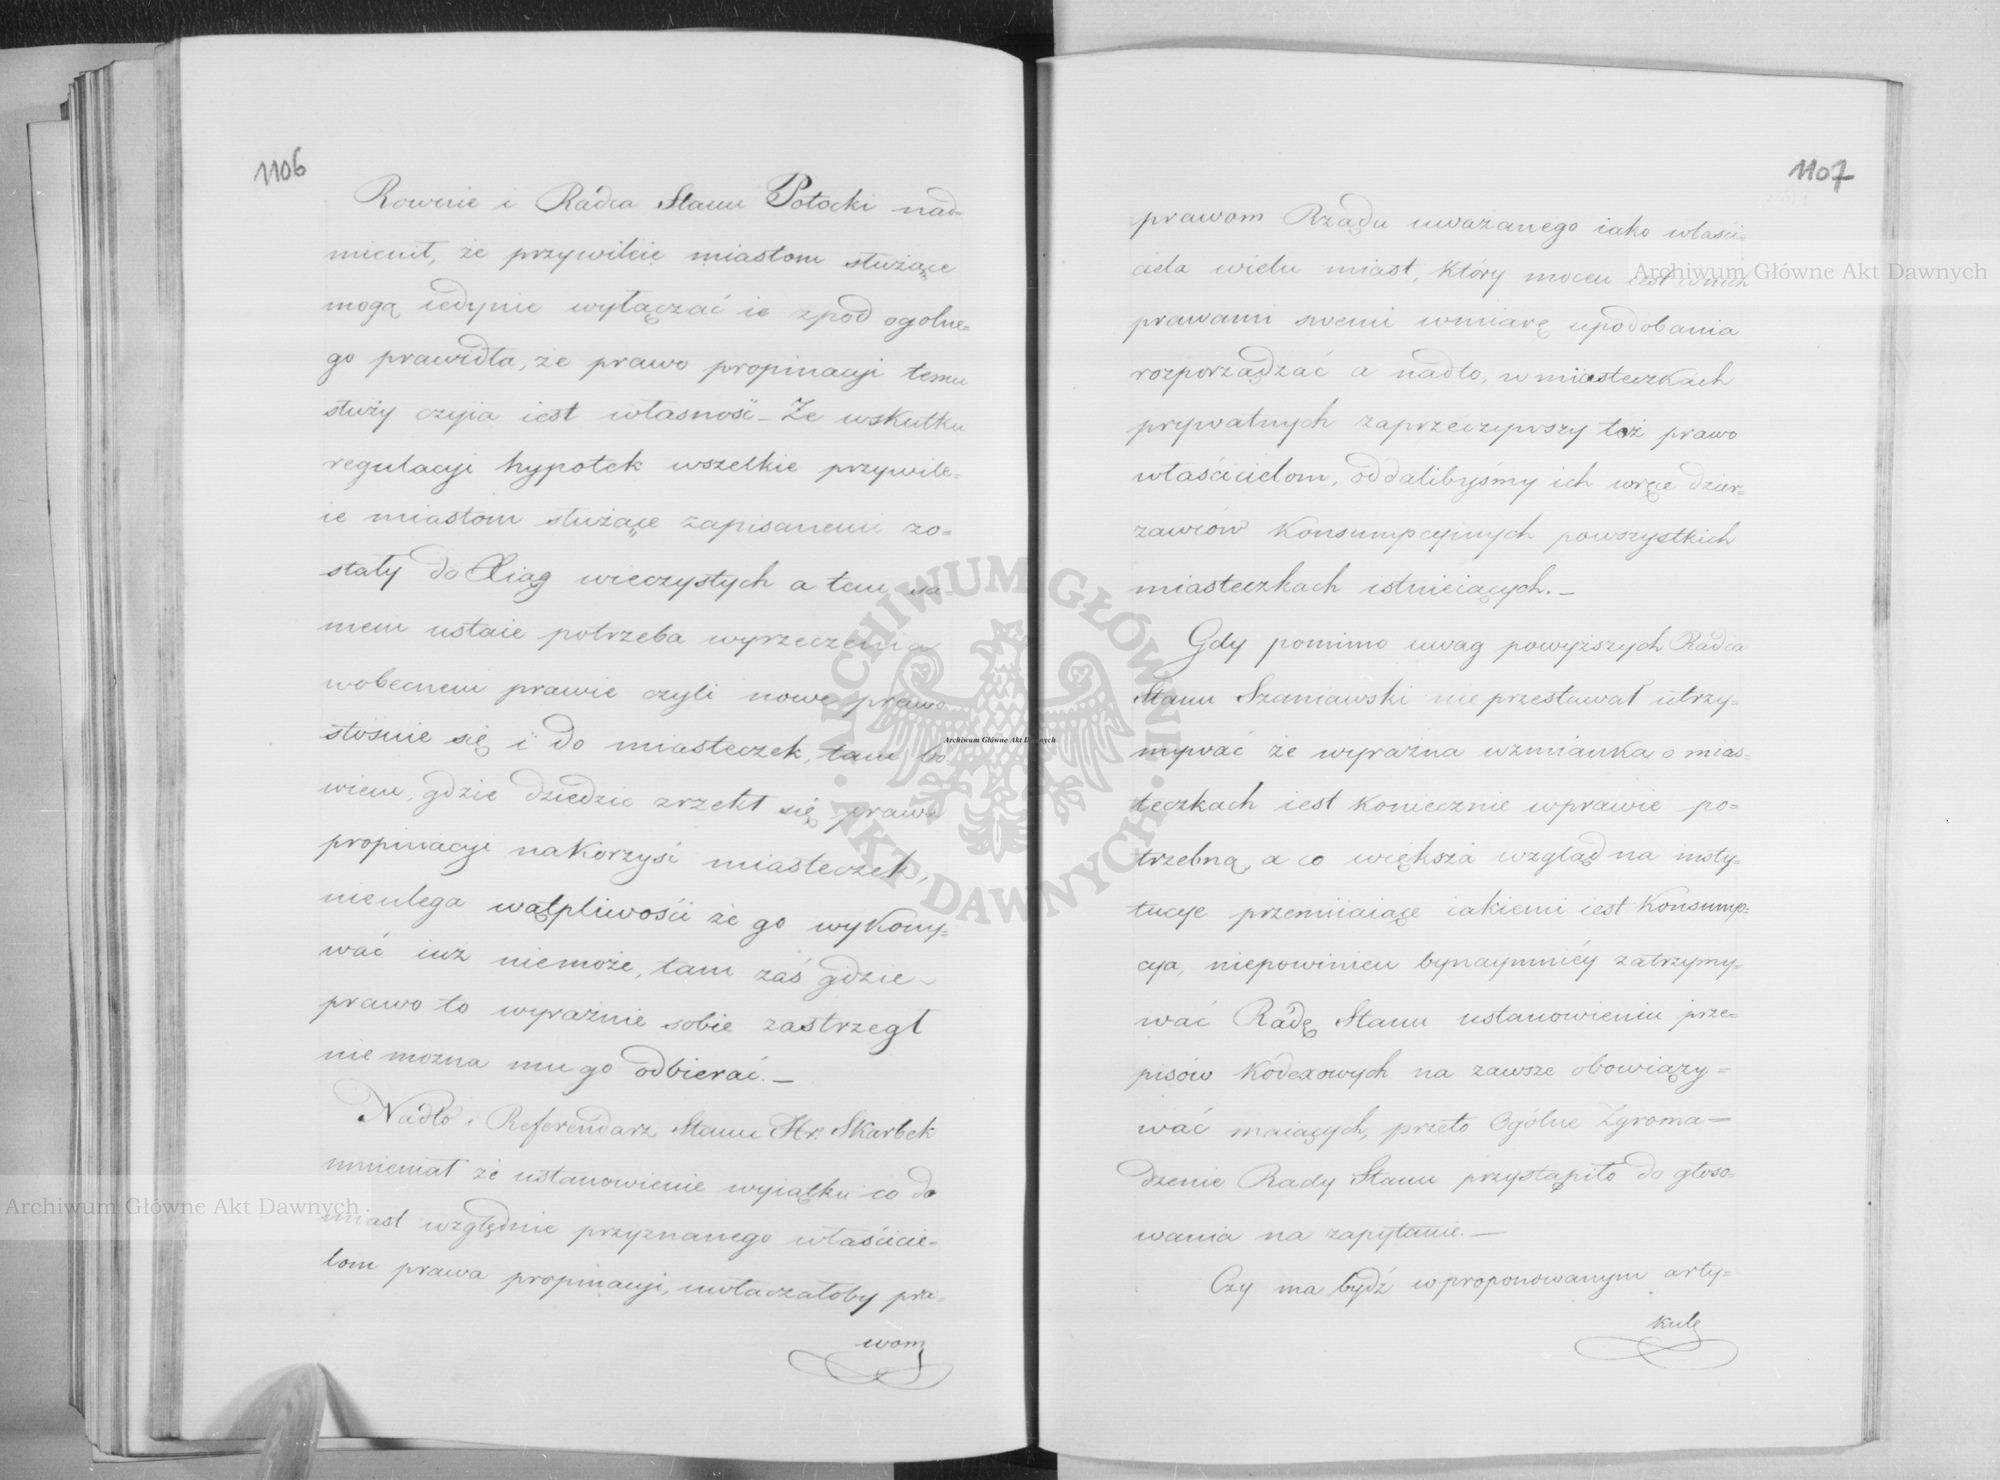 1106
Rownie i Radca Stanu Potocki nad-
mienił, że przywileie miastom służące
mogą iedynie wyłączać ie zpod ogolne=
go prawidła, że prawo propinacyi temu
służy czyia iest własność – Ze wskutku
regulacyi hypotek wszelkie przywile=
ie miastom służące zapisanemi zo=
stały do Xiąg wieczystych a tem sa=
mem ustaie potrzeba wyrzeczenia
wobecnem prawie czyli nowe prawo
stosuie się i do miasteczek, tam bo
wiem, gdzie dziedzic zrzekł się prawa
propinacyi nakorzyść miasteczek,
nieulega wątpliwości że go wykony=
wać iuż niemoże, tam zaś gdzie
prawo to wyraźnie sobie zastrzegł
niemożna mu go odbierać. –
Nadto i Referendarz Stanu Hr: Skarbek
mniemał że ustanowienie wyiątku co do
miast względnie przyznanego właścicie=
lom prawa propinacyi, uwłaczałoby pra=
wom
1107
prawom Rządu uwazanego iako właści=
ciela wielu miast, który mocen iest wnich
prawami swemi wmiarę upodobania
rozporządzać a nadto, w miasteczkach
prywatnych zaprzeczywszy toż prawo
właścicielom, oddalibyśmy ich wręce dzier=
zawców Konsumpcyinych powszystkich
miasteczkach istnieiących. –
Gdy pomimo uwag powyższych Radca
Stanu Szaniawski nieprzestawał utrzy=
mywać że wyraźna wzmianka o mias=
teczkach iest koniecznie wprawie po=
trzebną, a co większa wzgląd na insty=
tucye przemiiaiące iakiemi iest Konsump=
cya, niepowinien bynaymniéy zatrzymy=
wać Radę Stanu ustanowieniu prze=
pisów Kodexowych na zawsze obowiązy=
wać maiących, przeto Ogólne Zgroma=
dzenie Rady Stanu przystąpiło do głoso=
wania na zapytanie. –
Czy ma bydź wproponowanym arty=
kule
Archiwum Główne Akt Dawnych
Archiwum Główne Akt Dawnych
Archiwum Główne Akt Dawnych
ARCHIWUM GŁÓWNE AKT DAWNYCH